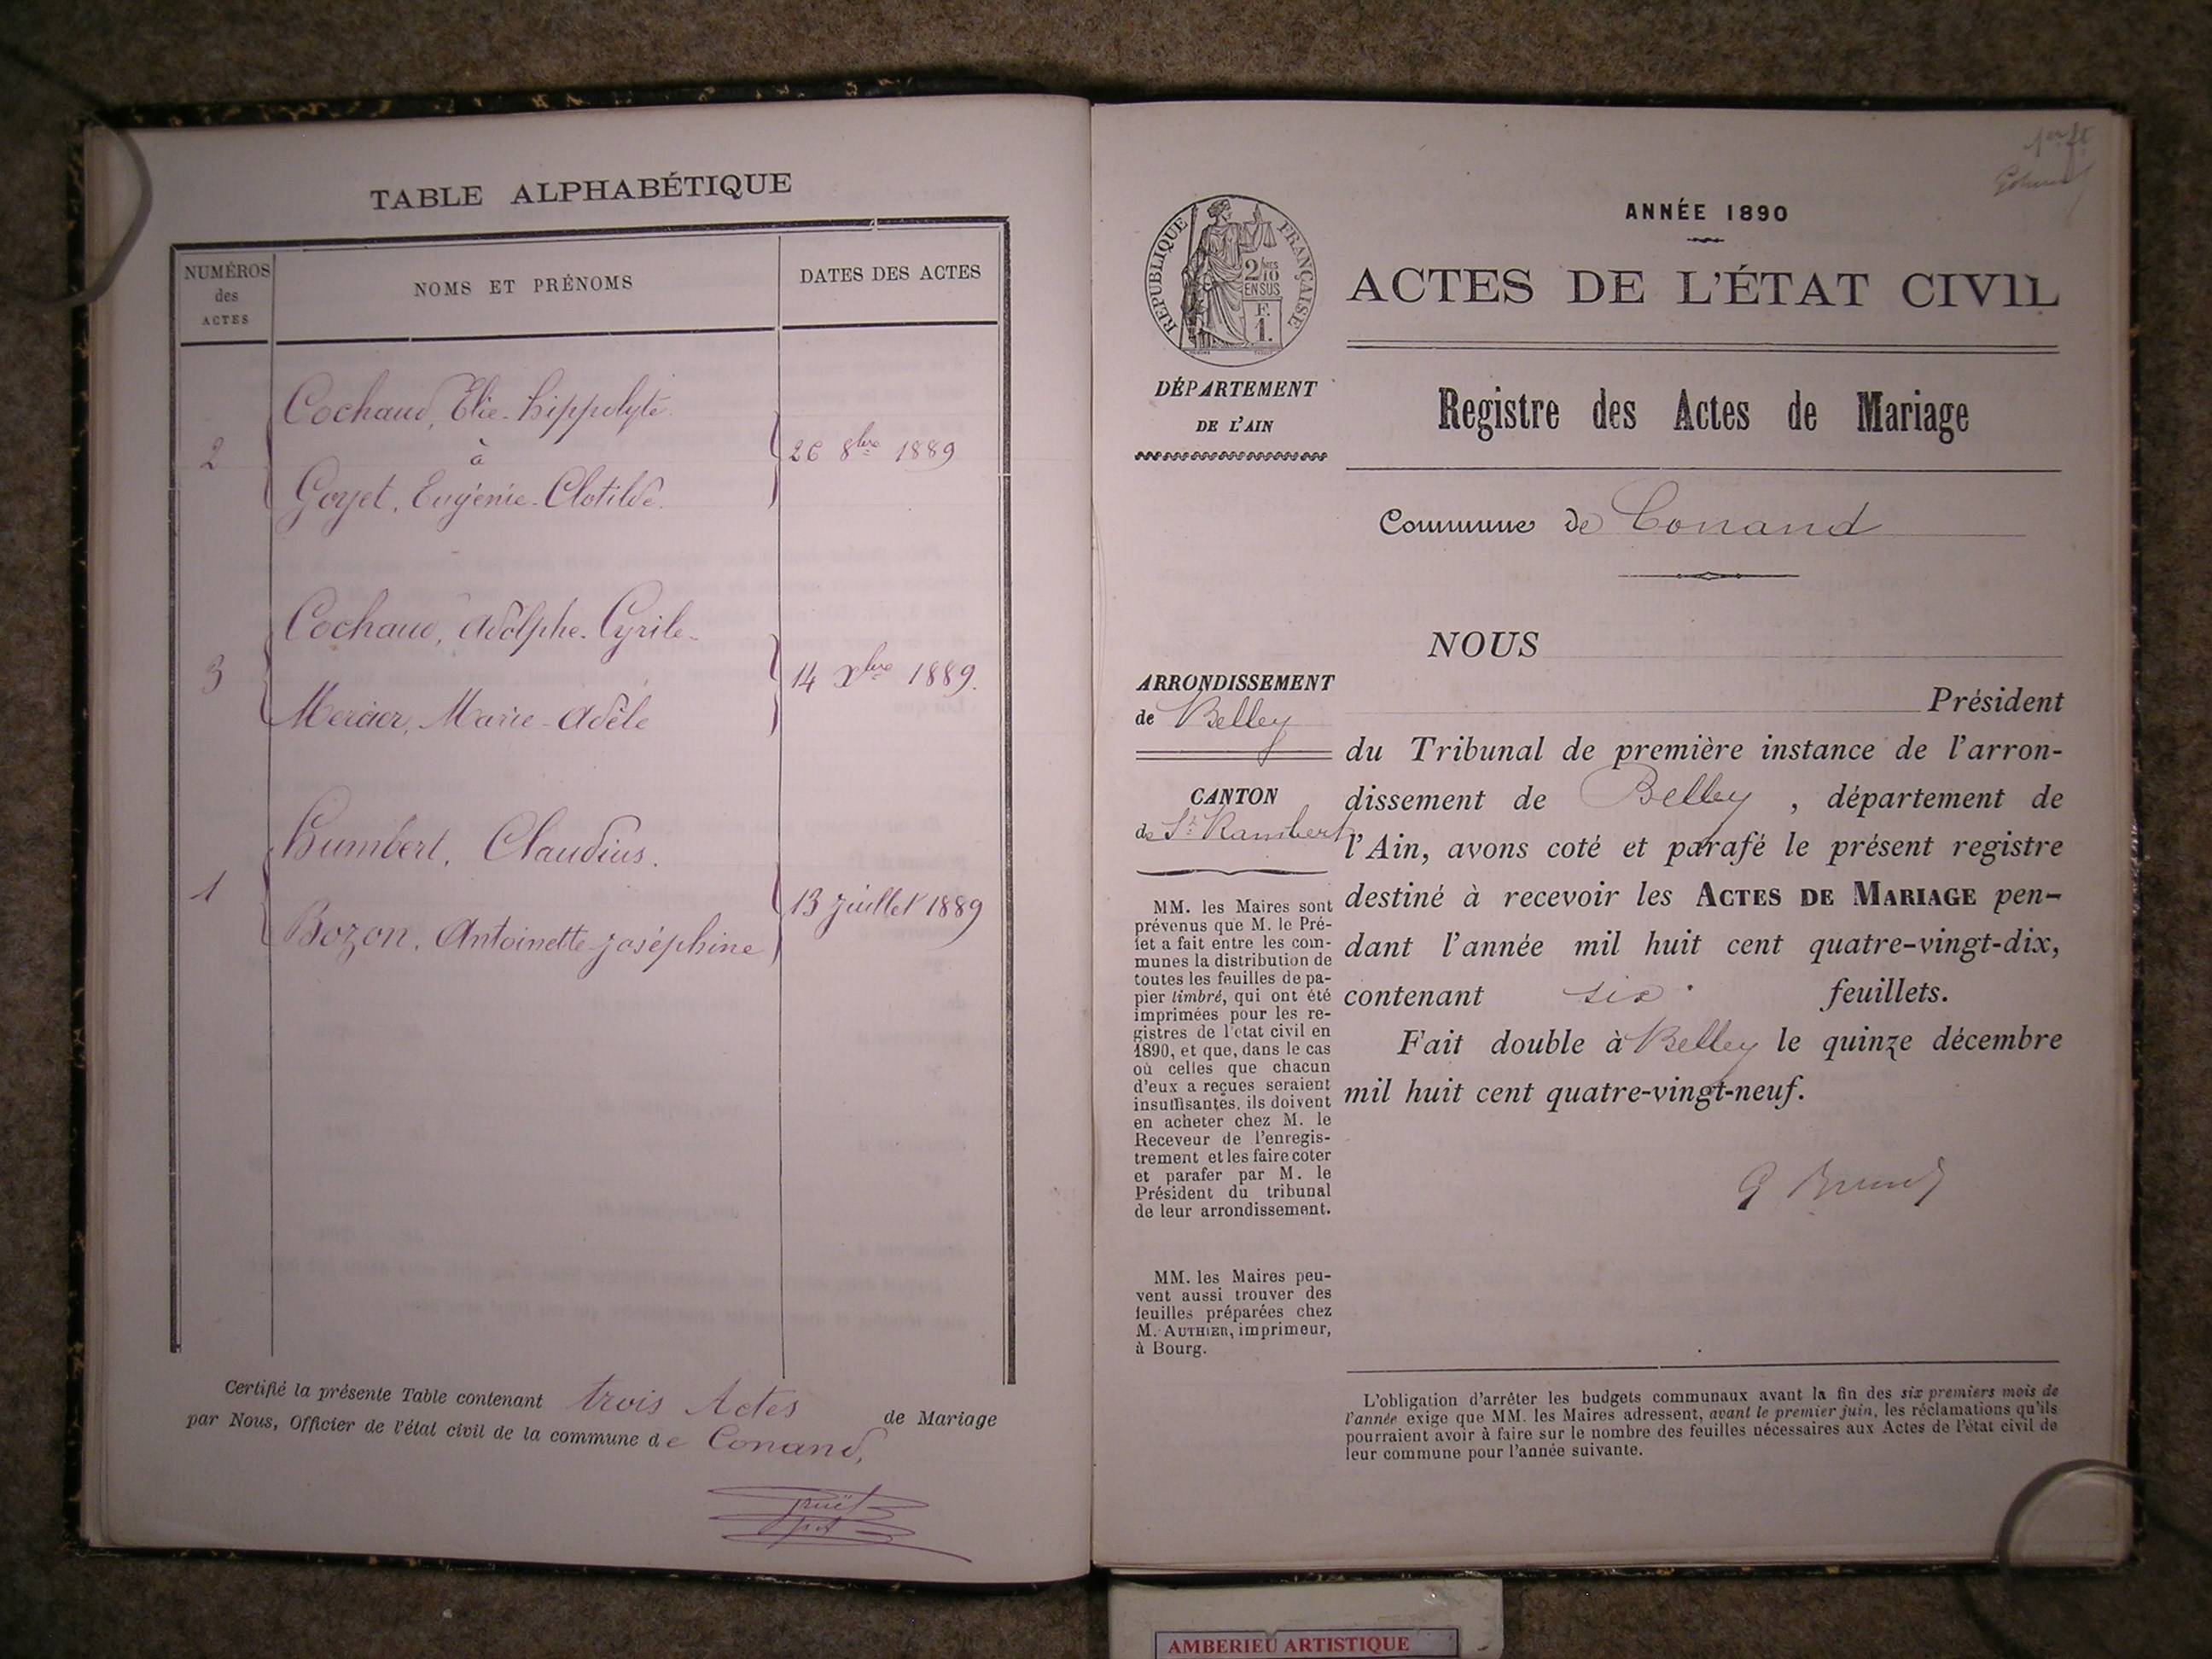 TABLE ALPHABÉTIQUE
NUMÉROS
des
ACTES
NOMS ET PRÉNOMS
DATES DES ACTES
Cochaud, Elie-hippolyte.
à
2
26 8bre 1889
Goyet, Eugénie-Clotilde.
Cochaud, Adolphe-Cyrile-
3
14 Xbre 1889.
Mercier, Marie-Adèle
Humbert, Claudius.
1
13 juillet 1889
Bozon, Antoinette-joséphine
Certifié la présente Table contenant trois Actes de Mariage
par Nous, Officier de l'état civil de la commune de Conand,
1er ft
RÉPUBLIQUE FRANÇAISE
2 MES
10
EN SUS
F.
1.
DÉPARTEMENT
DE L'AIN
ARRONDISSEMENT
de Belley
CANTON
de St Rambert
MM. les Maires sont
prévenus que M. le Pré-
fet a fait entre les com-
munes la distribution de
toutes les feuilles de pa-
pier timbré, qui ont été
imprimées pour les re-
gistres de l'état civil en
1890, et que, dans le cas
où celles que chacun
d'eux a reçues seraient
insuffisantes, ils doivent
en acheter chez M. le
Receveur de l'enregis-
trement et les faire coter
et parafer par M. le
Président du tribunal
de leur arrondissement.
MM. les Maires peu-
vent aussi trouver des
feuilles préparées chez
M. AUTHIER, imprimeur,
à Bourg.
ANNÉE 1890
ACTES DE L'ÉTAT CIVIL
Registre des Actes de Mariage
Commune de Conand
NOUS
Président
du Tribunal de première instance de l'arron-
dissement de Belley, département de
l'Ain, avons coté et parafé le présent registre
destiné à recevoir les ACTES DE MARIAGE pen-
dant l'année mil huit cent quatre-vingt-dix,
contenant six feuillets.
Fait double à Belley le quinze décembre
mil huit cent quatre-vingt-neuf.
L'obligation d'arrêter les budgets communaux avant la fin des six premiers mois de
l'année exige que MM. les Maires adressent, avant le premier juin, les réclamations qu'ils
pourraient avoir à faire sur le nombre des feuilles nécessaires aux Actes de l'état civil de
leur commune pour l'année suivante.
AMBERIEU ARTISTIQUE